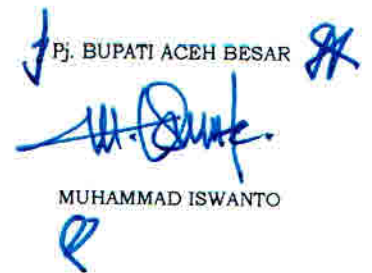 Pj. BUPATI ACEH BESAR
MUHAMMAD ISWANTO